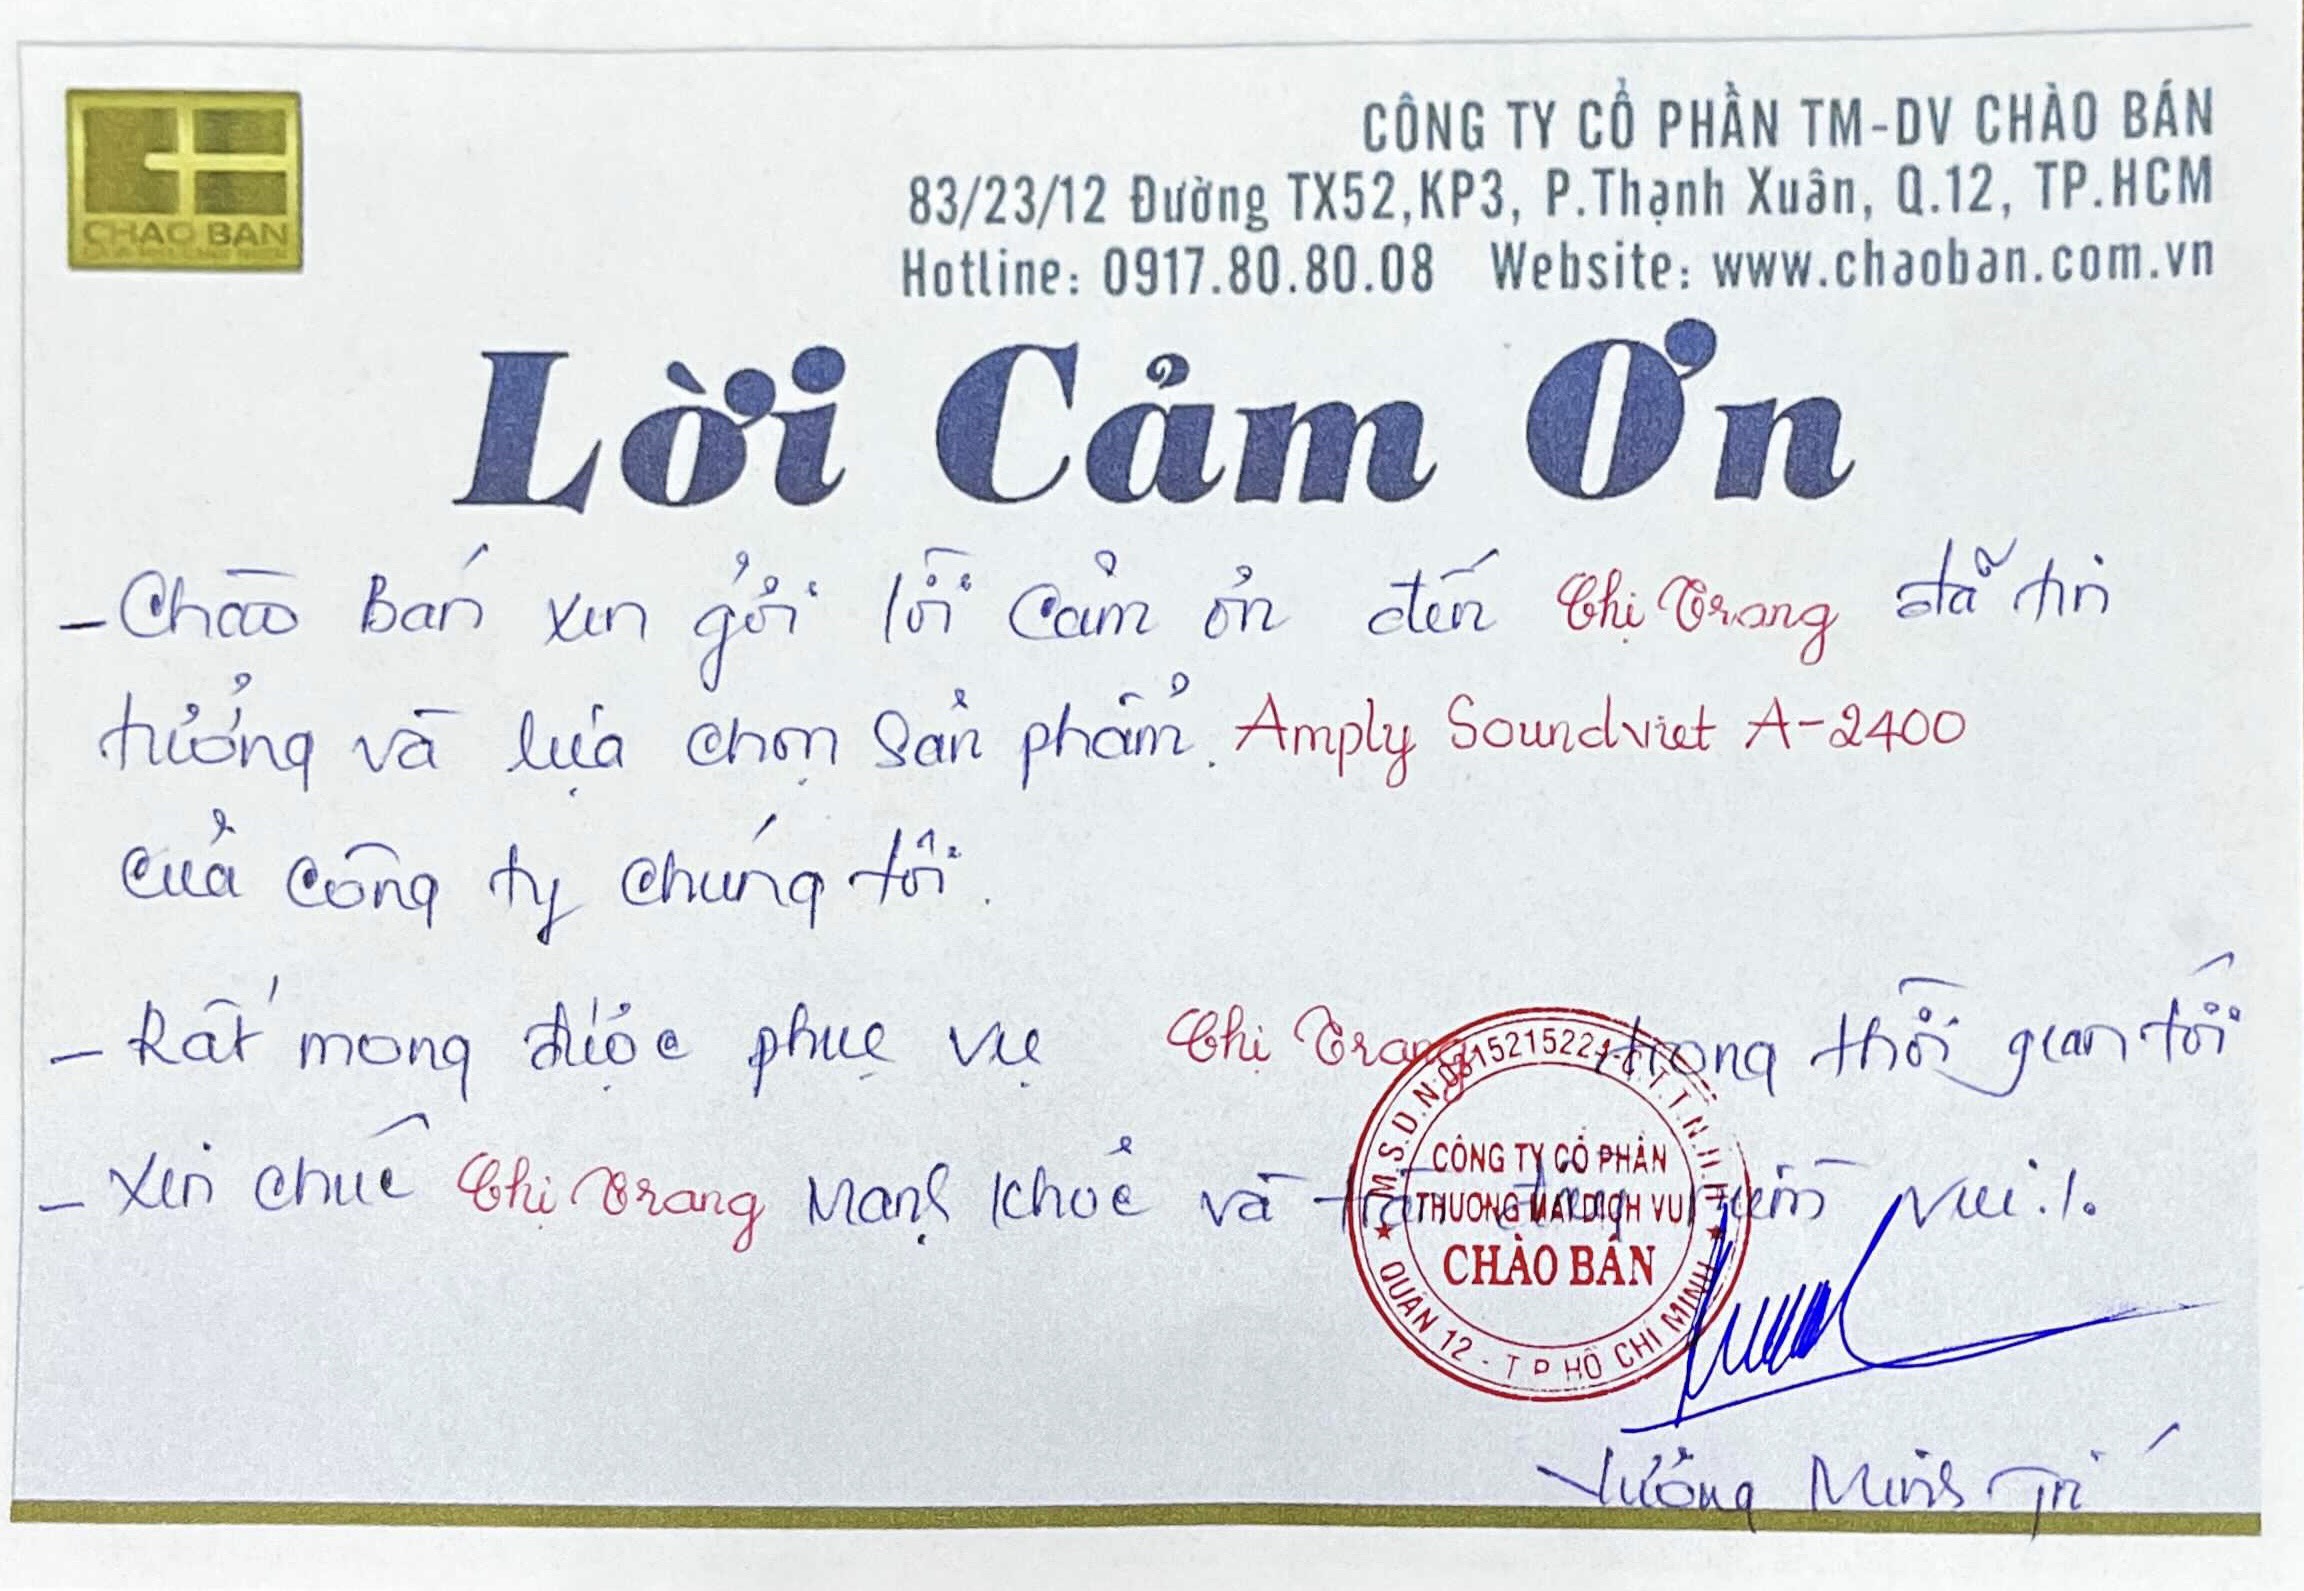 CHAO BAN
CÔNG TY CỔ PHẦN TM-DV CHÀO BÁN
83/23/12 Đường TX52,KP3, P.Thạnh Xuân, Q.12, TP.HCM
Hotline: 0917.80.80.08 Website: www.chaoban.com.vn
Lời Cảm Ơn
- Chào Bán xin gởi lời cảm ơn đến Chị Trang đã tin
tưởng và lựa chọn sản phẩm. Amply Soundviet A-2400
của công ty chúng tôi.
- Rất mong được phục vụ Chị Trang trong thời gian tới
- Xin chúc Chị Trang mạnh khoẻ và tràn đầy niềm vui./.
M.S.D.N:0315215221-C.T.T.N.H.H
CÔNG TY CỔ PHẦN
THƯƠNG MẠI DỊCH VỤ
CHÀO BÁN
QUẬN 12 - TP HỒ CHÍ MINH
Minh Trí